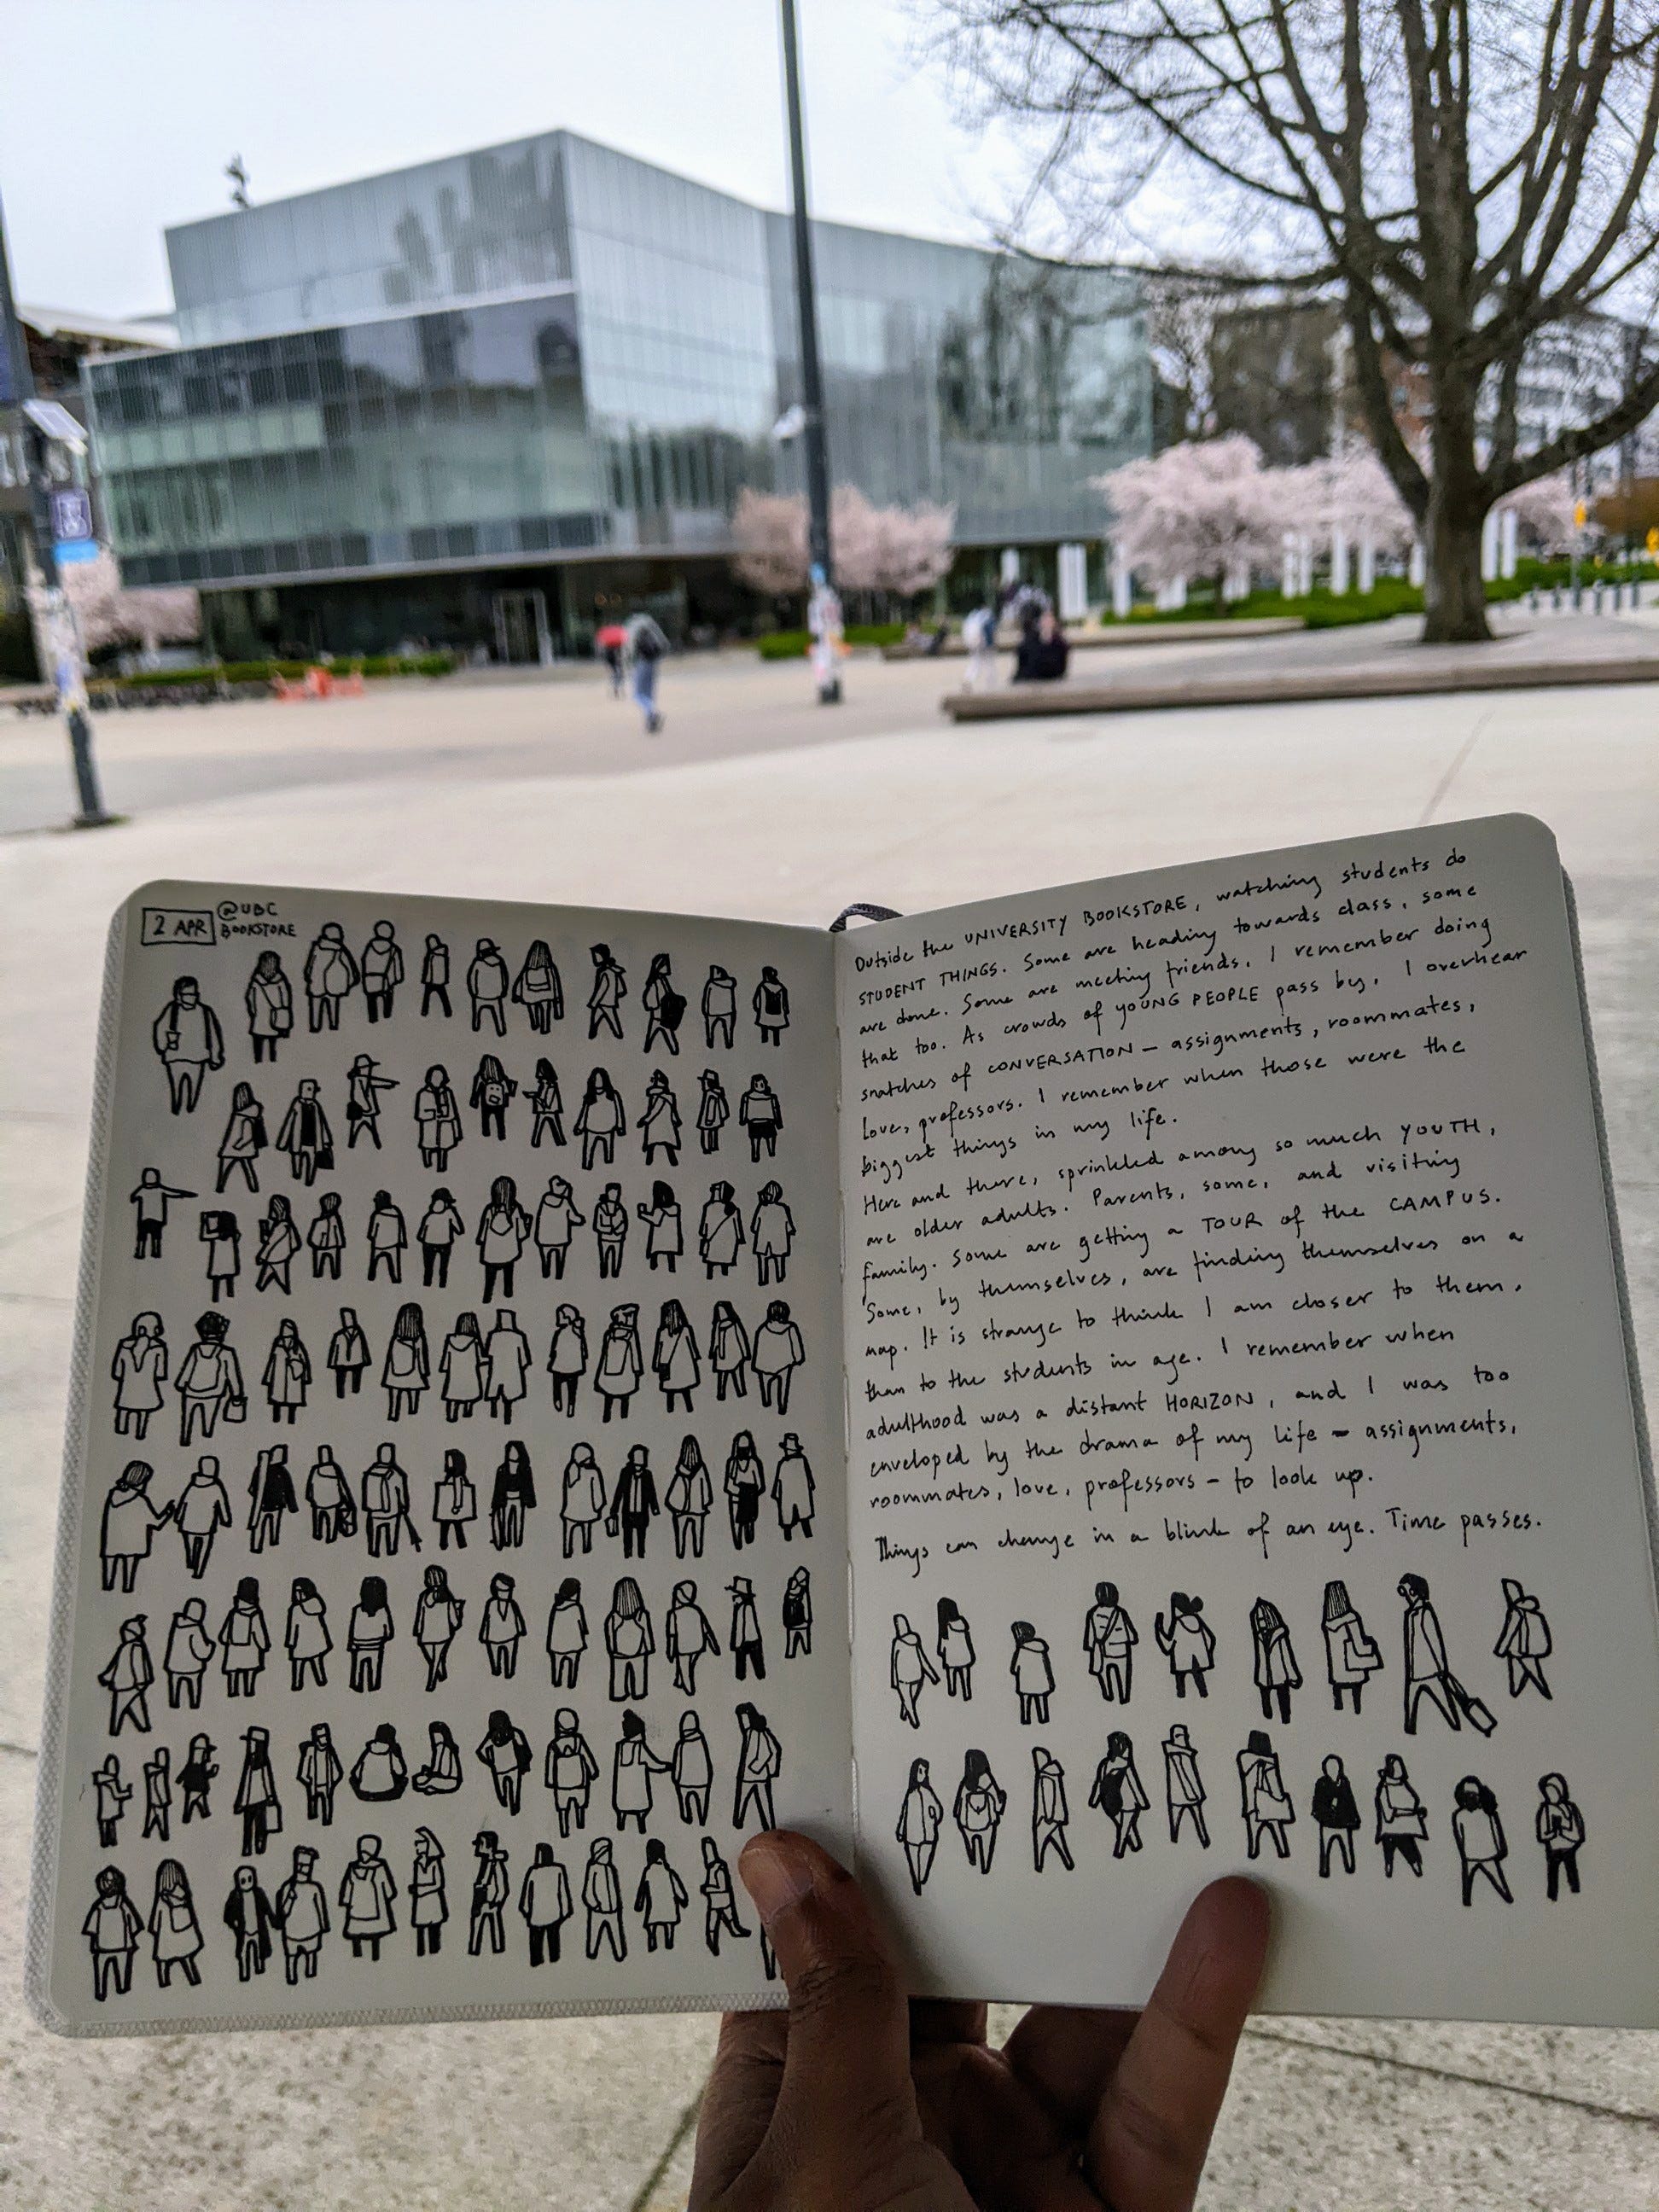 2 APR
@UBC
BOOKSTORE
Outside the UNIVERSITY BOOKSTORE, watching students do
STUDENT THINGS. Some are heading towards class, some
are done. Some are meeting friends. I remember doing
that too. As crowds of YOUNG PEOPLE pass by, I overhear
snatches of CONVERSATION - assignments, roommates,
love, professors. I remember when those were the
biggest things in my life.
Here and there, sprinkled among so much YOUTH,
are older adults. Parents, some, and visiting
family. Some are getting a TOUR of the CAMPUS.
Some, by themselves, are finding themselves on a
map. It is strange to think I am closer to them,
than to the students in age. I remember when
adulthood was a distant HORIZON, and I was too
enveloped by the drama of my life - assignments,
roommates, love, professors - to look up.
Things can change in a blink of an eye. Time passes.